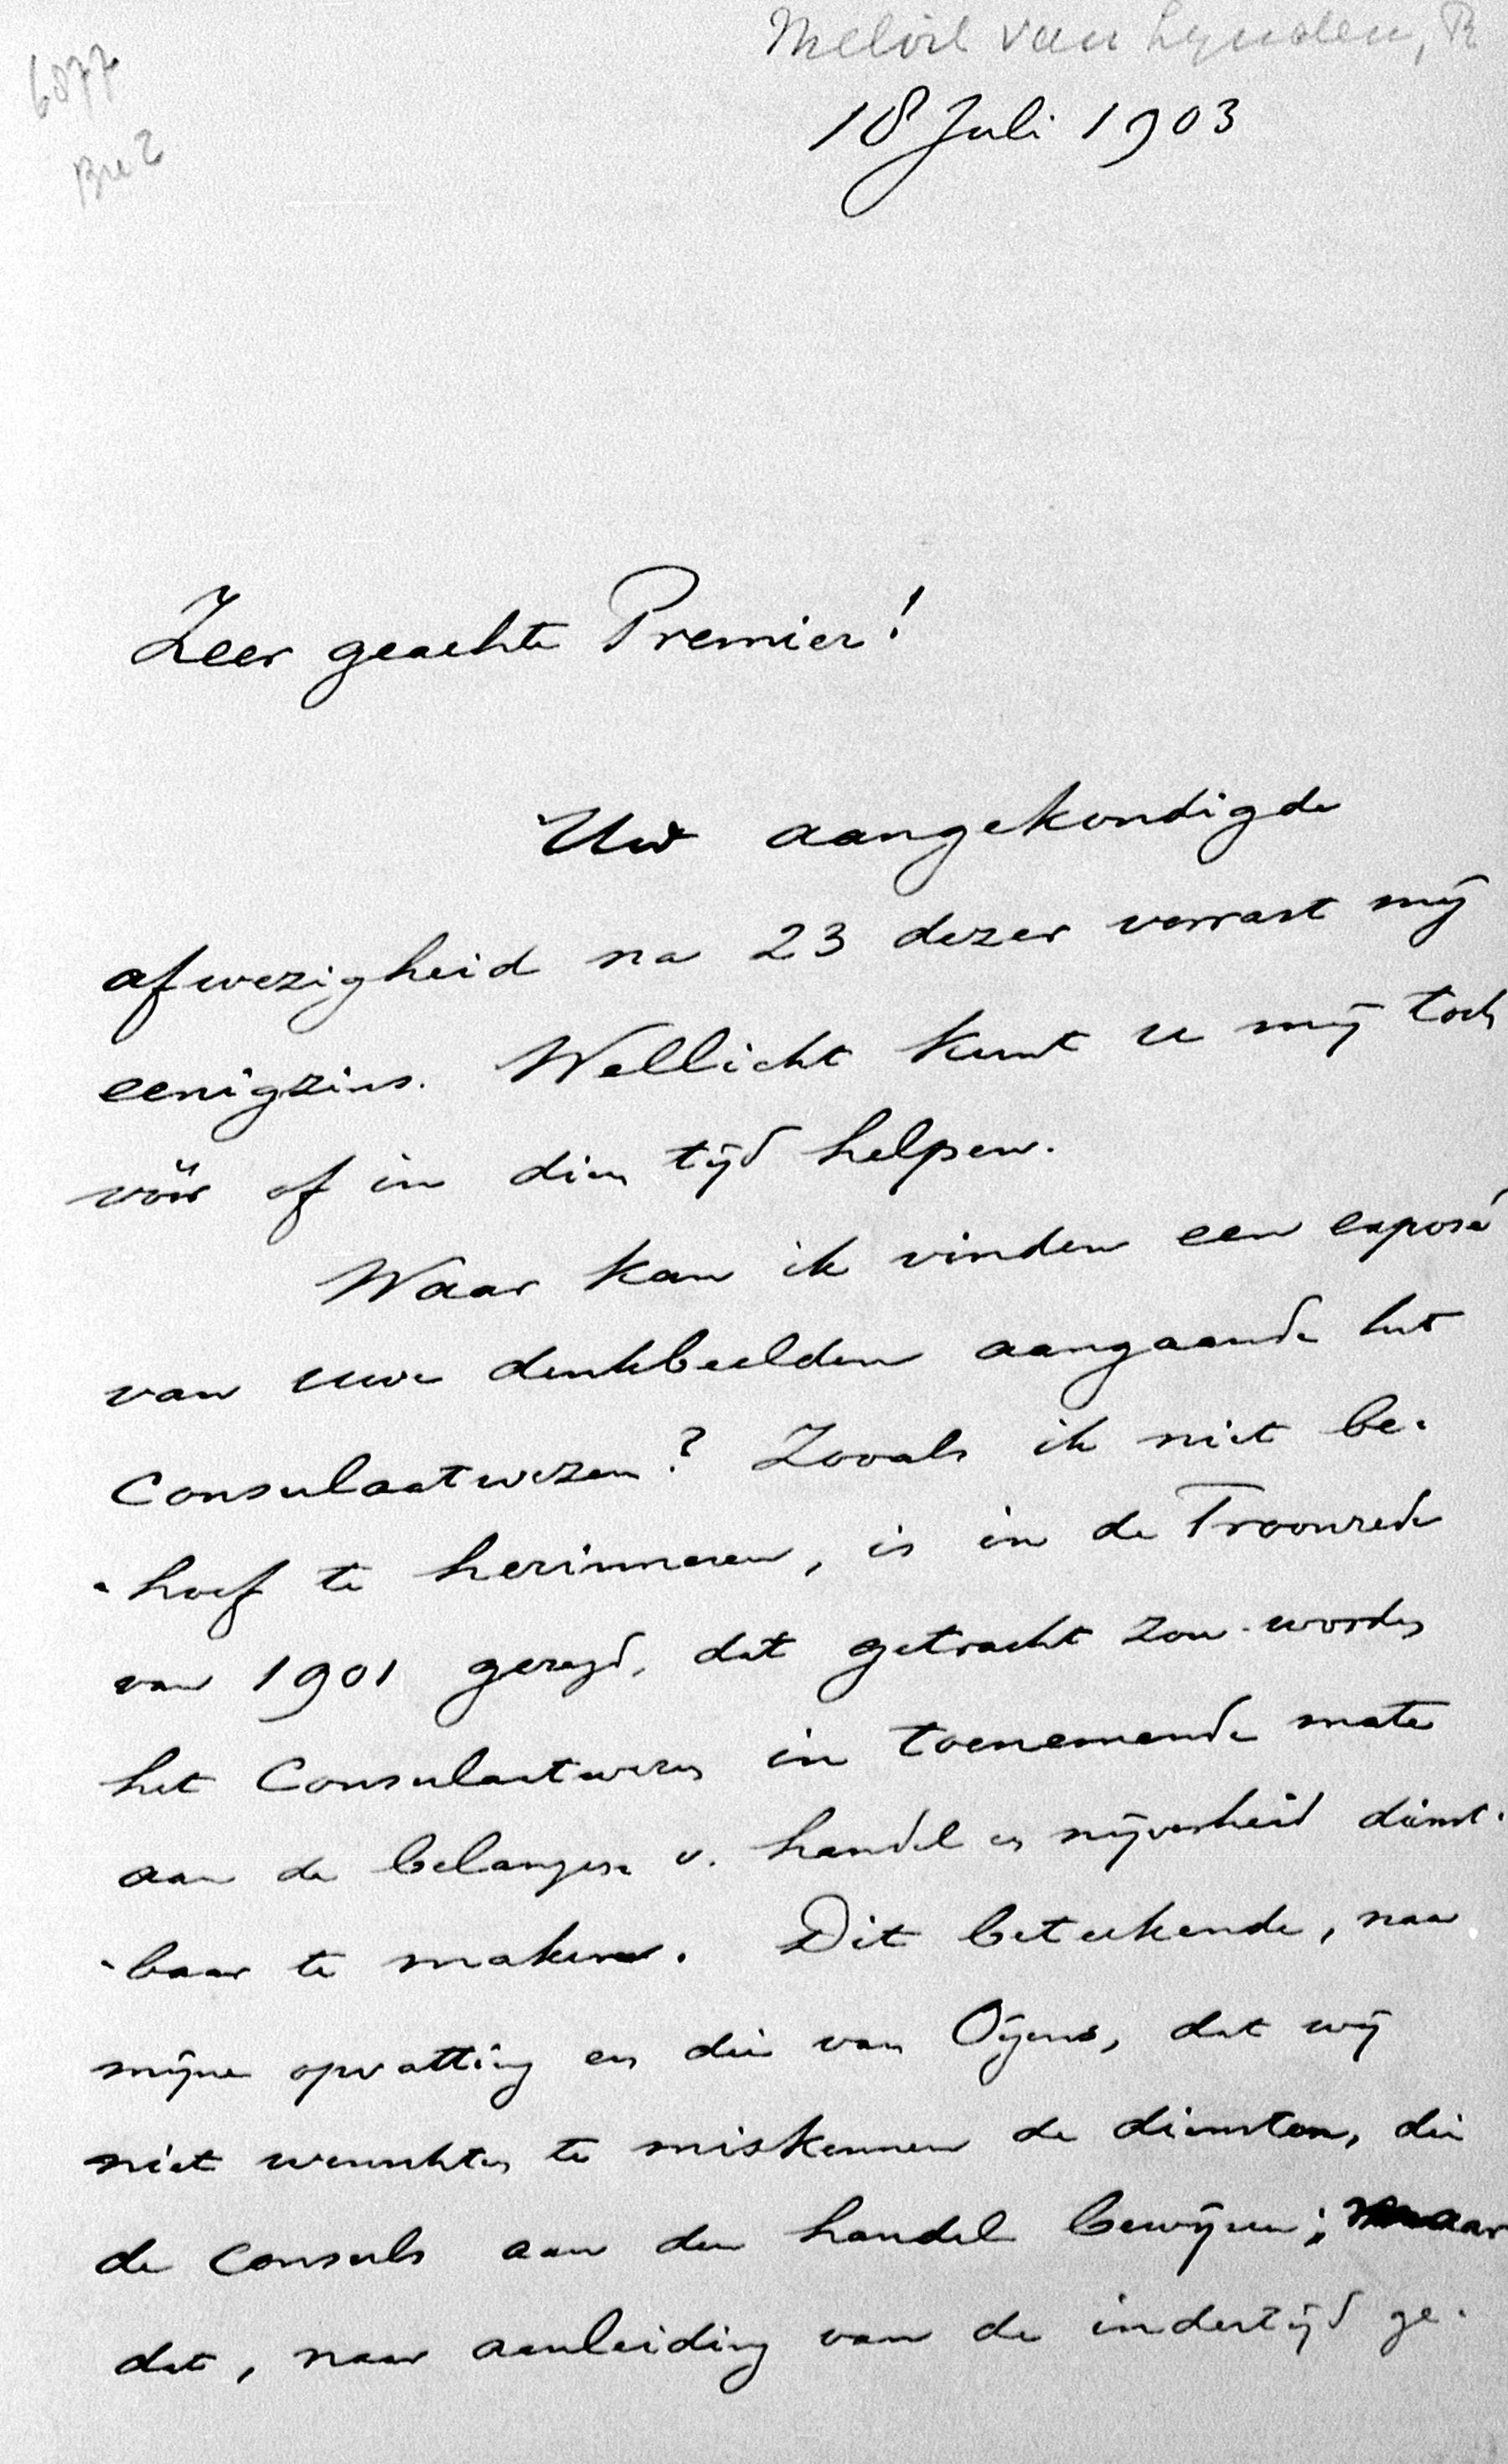 Melvil van Lynden, R
6077
Bre 2
18 Juli 1903
Zeer geachte Premier!
Uw aangekondigde
afwezigheid na 23 dezer verrast mij
eenigzins. Wellicht kunt u mij toch
vóór of in dien tijd helpen.
Waar kan ik vinden een exposé
van uwe denkbeelden aangaande het
Consulaatwezen? Zooals ik niet be-
-hoef te herinneren, is in de Troonrede
van 1901 gezegd, dat getracht zou worden
het Consulaatwezen in toenemende mate
aan de belangen v. handel en nijverheid dienst-
-baar te maken. Dit beteekende, naar
mijne opvatting en die van Oijens, dat wij
niet wenschten te miskennen de diensten, die
de Consuls aan den handel bewijzen; maar
dat, naar aanleiding van de indertijd ge-